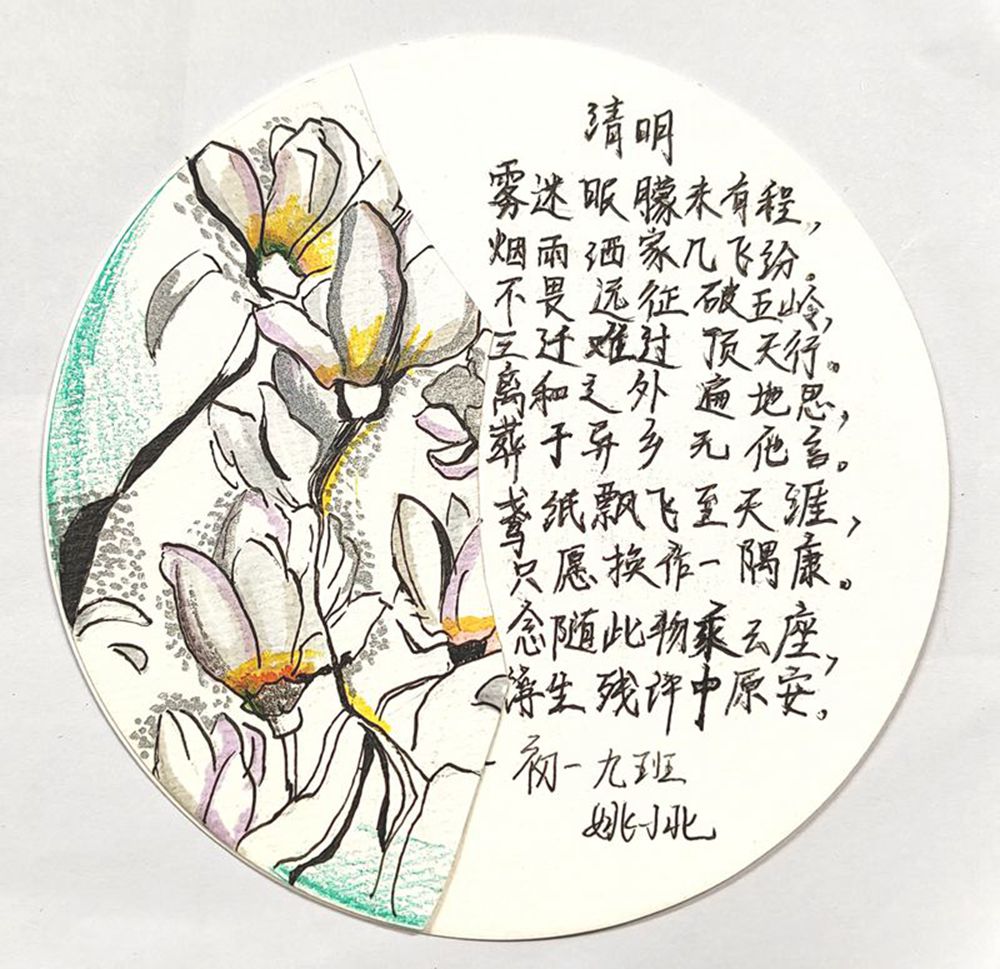 清明
雾迷眼朦未有程，
烟雨洒家几飞纷。
不畏远征破五岭，
三迁难过顶天行。
离和之外遍地思，
葬于异乡无他言。
鸢纸飘飞至天涯，
只愿换作一隅康。
念随此物乘云座，
薄生残许中原安。
初一九班
姚小北